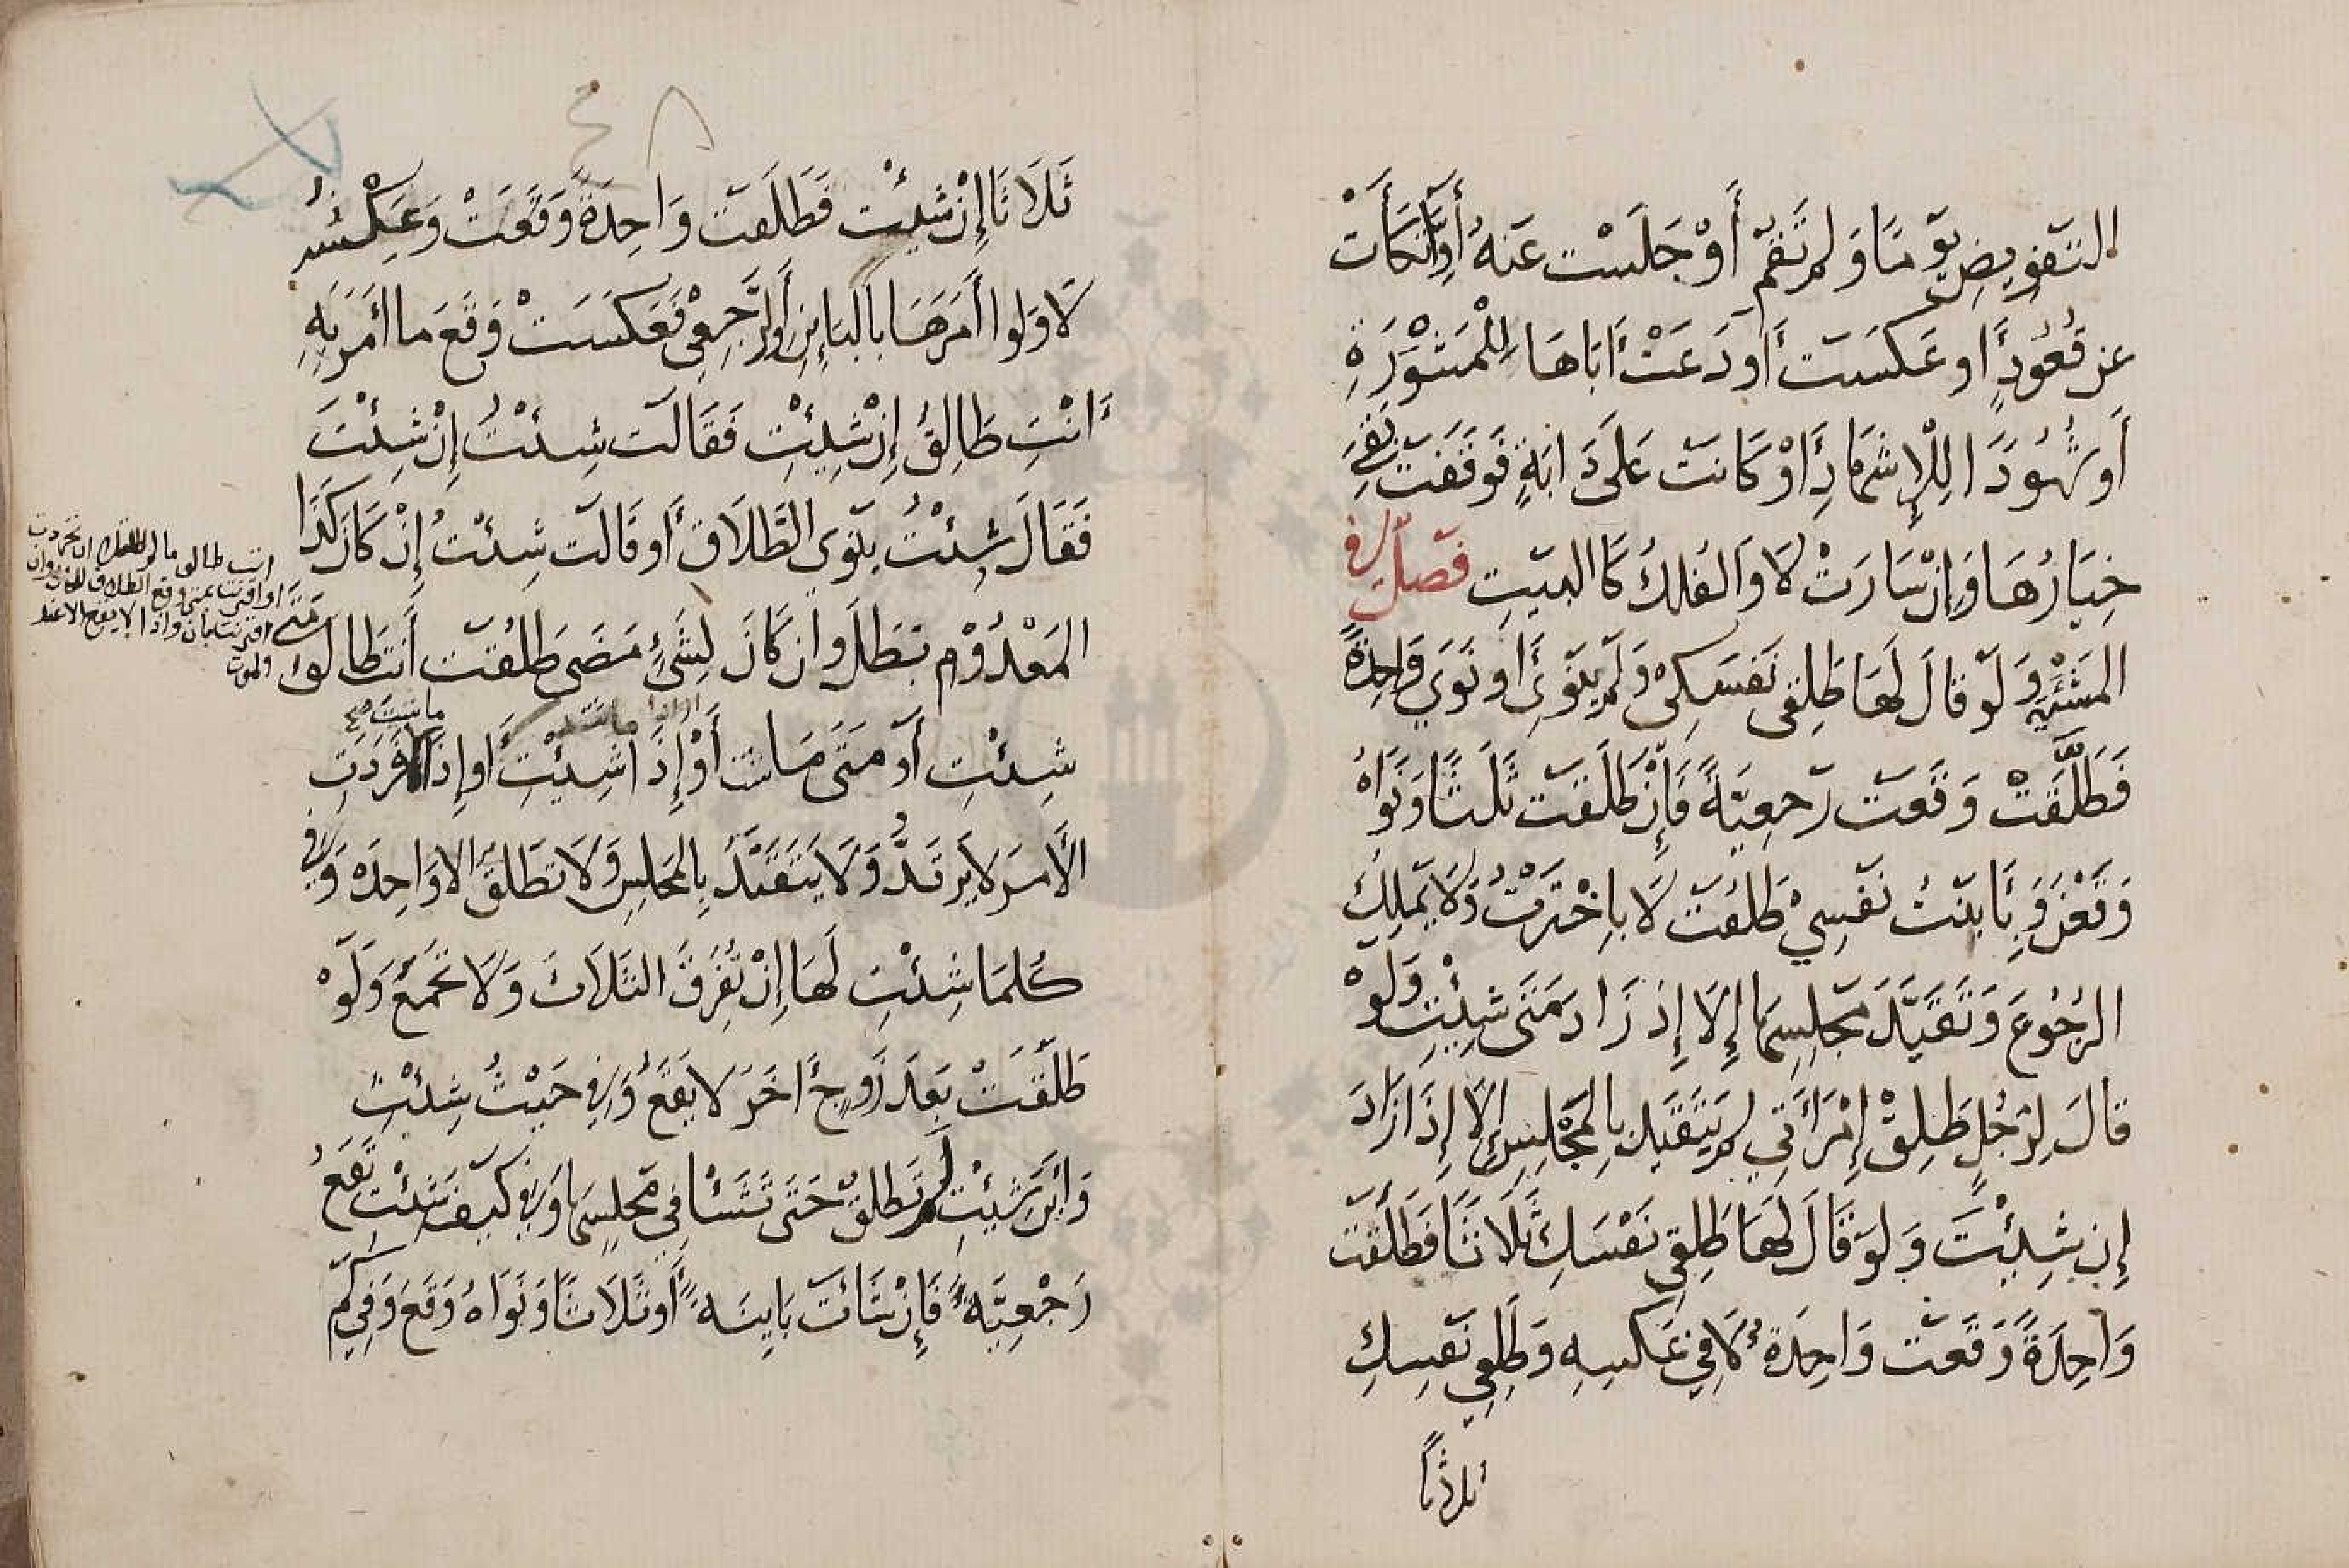 التَّفْوِيضِ يَوْمًا وَلَمْ تَقُمْ أَوْ جَلَسَتْ عَنهُ أَوِ اتَّكَأَتْ
عن قُعُودٍ او عَكَسَت أَو دَعَتْ أَبَاهَا لِلْمَشْوَرَةِ
أَو شُهُودًا لِلْإِشهَادِ أَوْ كَانت عَلَى دَابَةٍ فَوَقَفَت بَقِىَ
خِيَارُهَا وَإِنْ سَارَتْ لَا وَالفُلكُ كَالبَيتِ فَصلٌ فى
المَشْئَيةِ وَلَو قالَ لَهَا طَلِقى نَفسَكِى وَلَم يَنوِى أَو نَوَي وَاحِدَةً
فَطَلَّقَتْ وَقَعَت رَجعِيَّةً فَإِنْ طَلَقَت ثَلَثًا وَنَوَاهُ
وَقَعْنَ وَبِأَبَنتُ نَفسِي طَلُقَت لَا بِاخْتَرْتُ وَلَا يَملِكُ
الرُجُوعَ وَتَقَيَّدَ بمَجلِسِهَا إِلَا إِذ زَادَ مَتَى شِئْتِ وَلَوْ
قالَ لِرَجُلٍ طَلِقْ إِمْرَأَتِي لم يَتَقَيد بِالمَجْلِسِ إِلَّا إِذَا زَادَ
إِن شِئْتَ وَلَو قَالَ لَهَا طَلِقِي نَفْسَكِ ثَلَاثًا فَطَلَّقَت
وَاحِدَةً وَقَعَت وَاحِدَةٌ لَا فِي عَكسِهِ وَطَلِقي نَفسِكِ
ثلاثاً
٤٨
ثَلَاثًا إِنْ شِئْت فَطَلَقت وَاحِدَةً وَقَعَتْ وَعَكْسُهُ
لَا وَلوا أَمَرَهَا بِالبَائِنِ أَوِ الرَّجعِي فَعَكَسَتْ وَقَعَ ما أَمَرَ بَهِ
أَنْتِ طَالِقٌ إِنْ شِئتِ فَقَالَت شِئْتُ إِنْ شِئْتَ
فَقَالَ شِئْتُ يَنوِى الطَّلَاقَ أَو قَالَت شِئتُ إِنْ كَانَ كَذَا
المَعْدُوْمِ بَطَلَ وَان كَانَ لِشَئٍ مَضَى طَلُقَت أَنت طَالَق مَتَى
شِئْتِ أَو مَتَى مَا شت أَوْ إِذَا شِئْتِ أَو إِذَا ما شئت فَرَدَتِ
الأَمرَ لا يَرتَدُّ وَلَا يَتَقَيَّدُ بِالمَجلِسِ وَلَا تَطَلقُ الا وَاحِدَه وَفى
كُلَمَا شِئْتِ لَهَا إِنْ تُفَرِقَ الثَلَاثَ وَلَا تَجمَعُ وَلَوْ
طَلَّقَتْ بَعدَ زَوجٍ أَخَرَ لَا يَقَعُ وَفى حَيْثُ شِئْتِ
وَأَيْنَ شِئْتِ لَم تَطلقْ حَتَى تَشَأ فِي مَجلِسِهَا وَفى كَيفَ شِئْتِ تَقَعُ
رَجْعِيَّةً فَإِنْ شَائَت بَايِنَةً أَو ثَلَاثًا وَنَوَاهُ وَقَعَ وَفِي كَم